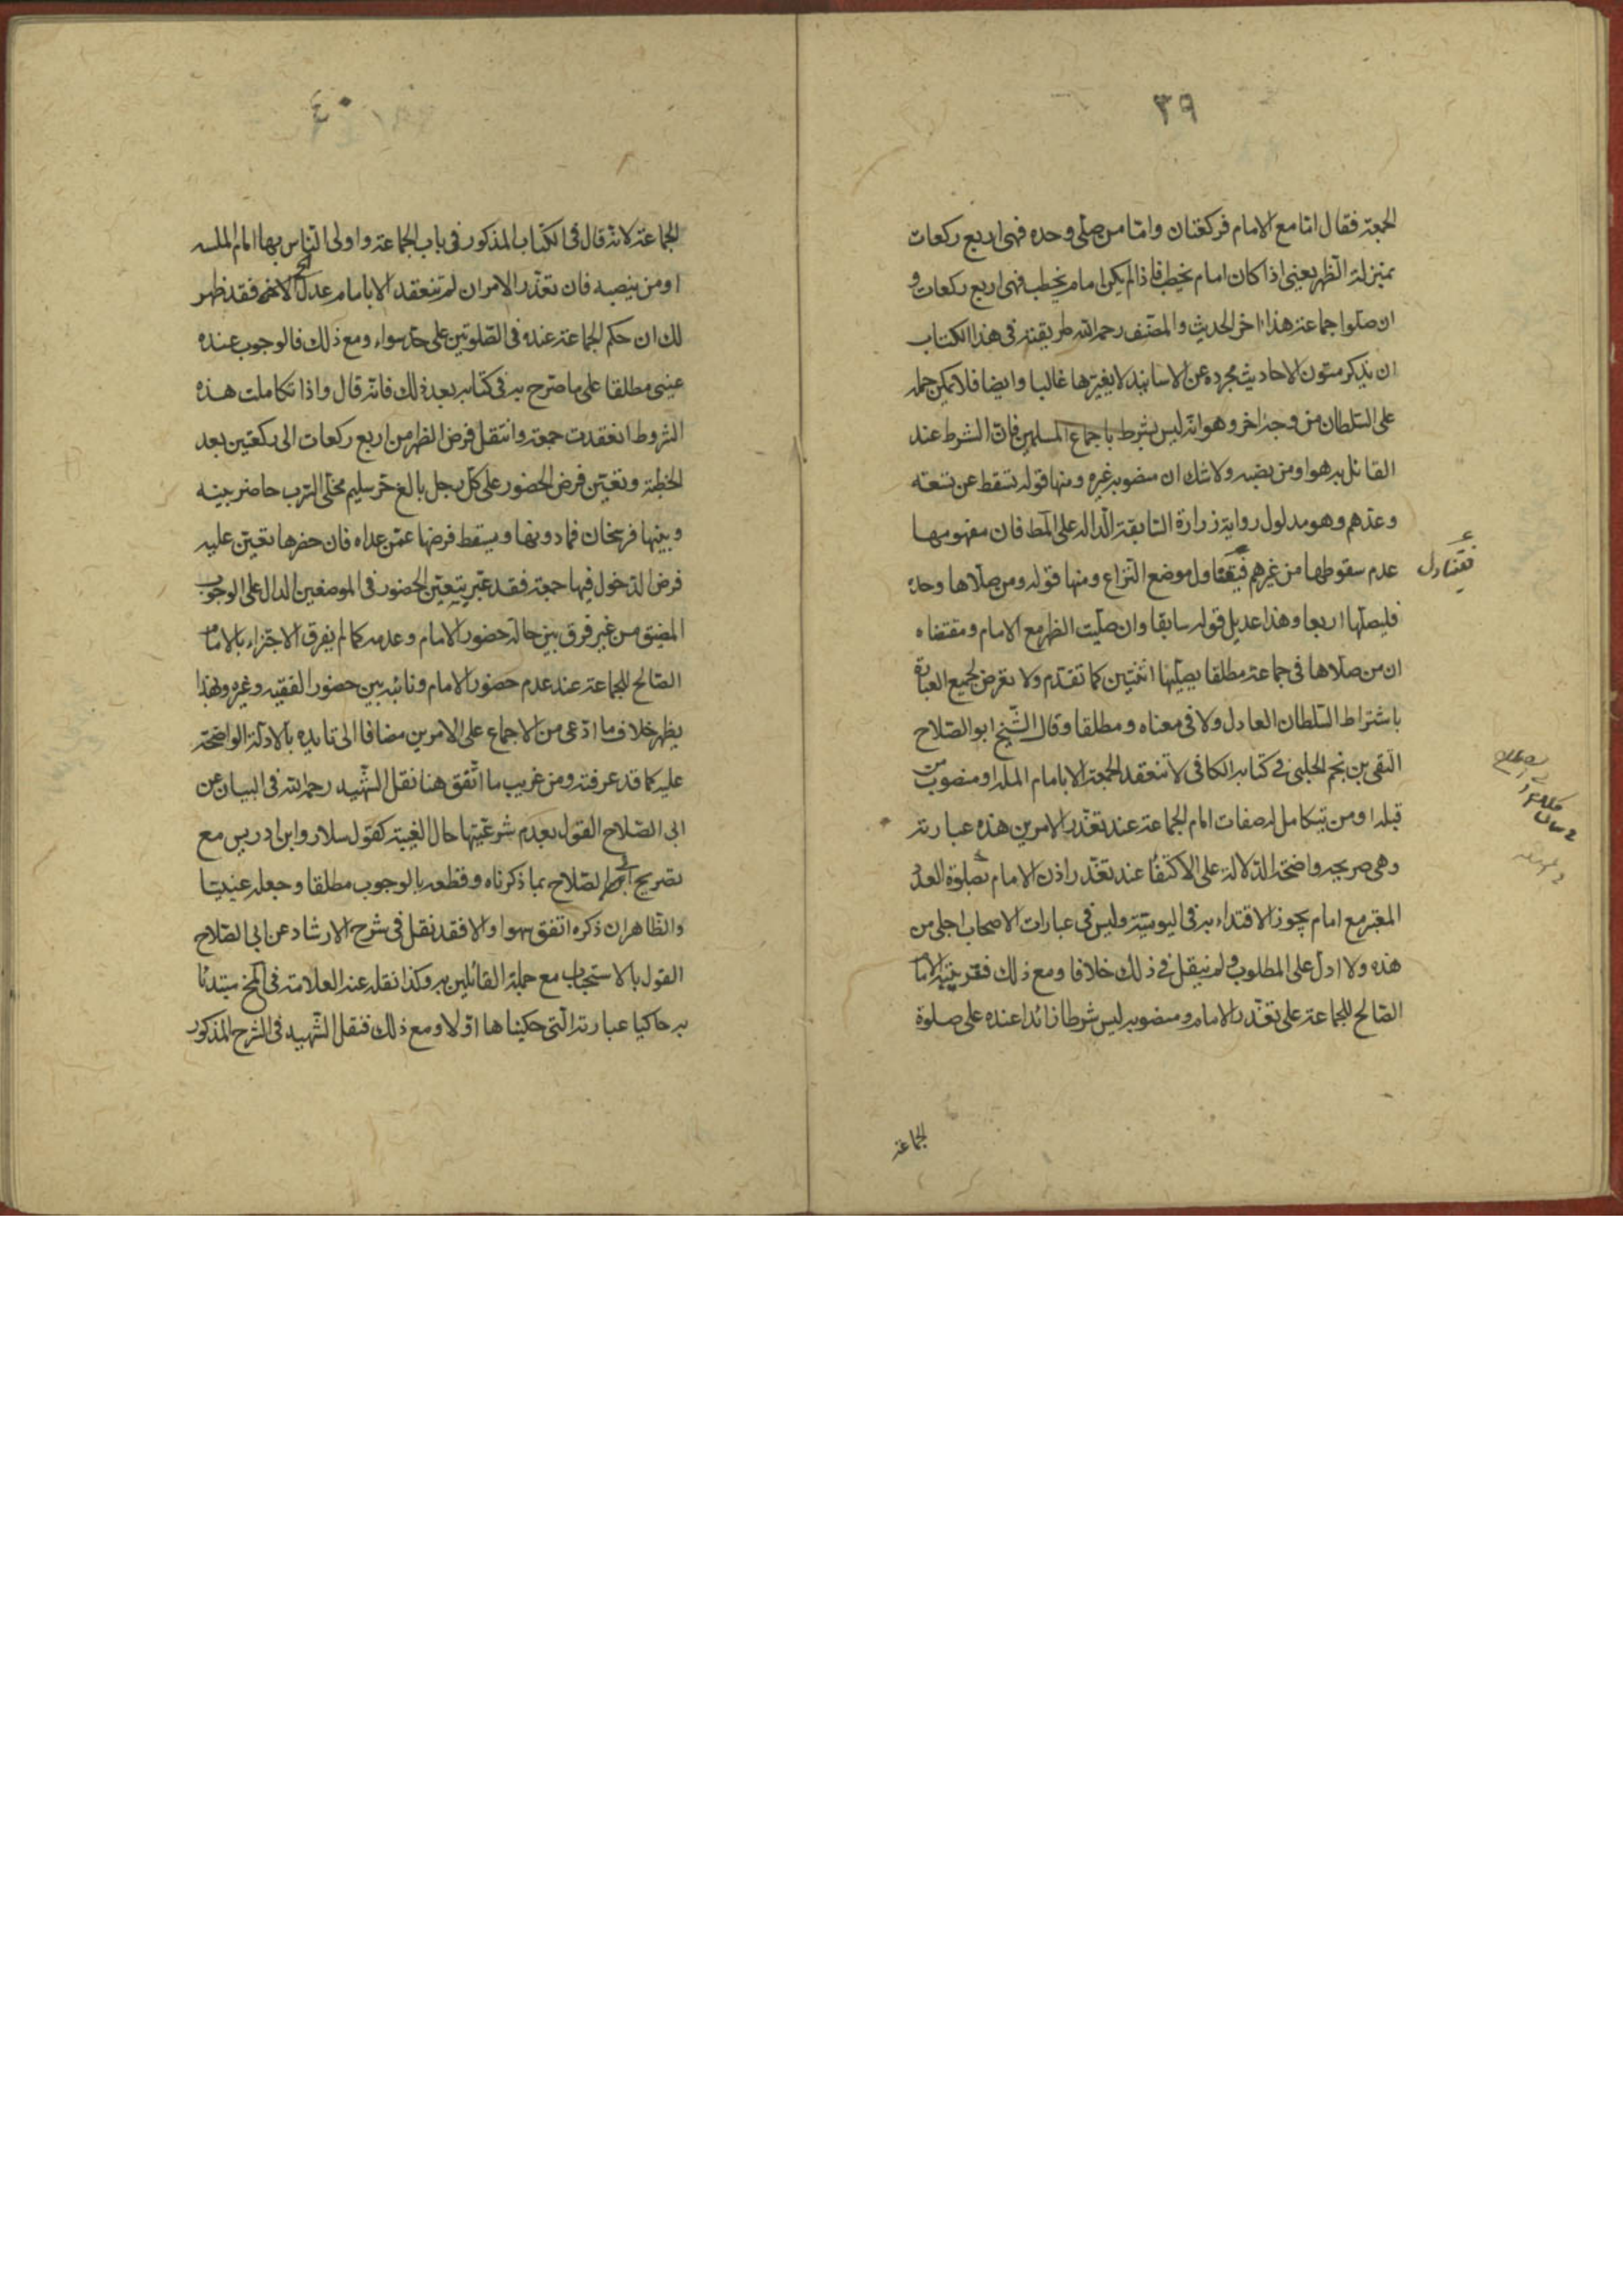 ٣٩
الجمعة فقال امّا مع الامام فركعتان وامّا من صلّى وحده فهى اربع ركعات
بمنزلة الظهر يعنى اذا كان امام يخطب فاذا لم يكن امام يخطب فهى اربع ركعات و
ان صلّوا جماعة هذا اخر الحديث والمصنّف رحمه الله طريقته فى هذا الكتاب
ان يذكر متون الاحاديث مجرده عن الاسانيد لا يغيّرها غالبا وايضا فلا يمكن حمله
على السّلطان من وجه اخر وهو انّه ليس بشرط باجماع المسلمين فانّ الشرط عند
القائل به هو او من نصبه ولا شك ان منصوبه غيره ومنها قوله تسقط عن تسعة
وعدّهم وهو مدلول رواية زرارة السّابقة الدّالة على المط فان مفهومها
عدم سقوطها من غيرهم فيتناول موضع النّزاع ومنها قوله ومن صلّاها وحده
فليصلّها اربعا وهذا عديل قوله سابقا وان صلّيت الظهر مع الامام ومقتضاه
ان من صلّاها فى جماعة مطلقا يصلّيها اثنتين كما تقدّم ولا تعرض لجميع العبارة
باشتراط السّلطان العادل ولا فى معناه ومطلقا وقال الشّيخ ابو الصّلاح
التّقى بن نجم الحلبى فى كتابه الكافى لا تنعقد الجمعة الا بامام الملة او منصوب من
قبله او من يتكامل له صفات امام الجماعة عند تعذّر الامرين هذه عبارته
وهى صريحه واضحة الدّلالة على الاكتفاء عند تعذّر اذن الامام بصلوة العدد
المعتبر مع امام يجوز الاقتداء به فى اليوميّة وليس فى عبارات الاصحاب اجلى من
هذه ولا ادلّ على المطلوب ولم ينقل فى ذلك خلافا ومع ذلك فقرينية الامام
الصّالح للجماعة على تعذّر الامام ومنصوبه ليس شرطا زائدا عنده على صلوة
فيتناول
الجماعة
٤٠
الجماعة لانّه قال فى الكتاب المذكور فى باب الجماعة واولى النّاس بها امام الملة
او من ينصبه فان تعذّر الامران لم تنعقد الا بامام عدل الخ فقد ظهر
لك ان حكم الجماعة عنده فى الصّلوتين على حدّ سواء ومع ذلك فالوجوب عنده
عينى مطلقا على ما صرّح به فى كتابه بعد ذلك فانّه قال واذا تكاملت هذه
الشّروط انعقدت جمعة وانتقل فرض الظهر من اربع ركعات الى ركعتين بعد
الخطبة وتعيّن فرض الحضور على كلّ رجل بالغ حرّ سليم مخلّى السّرب حاضر بينه
وبينها فرسخان فما دونها ويسقط فرضها عمّن عداه فان حضرها تعيّن عليه
فرض الدّخول فيها جمعة فقد عبّر بتعيّن الحضور فى الموضعين الدال على الوجوب
المضيّق من غير فرق بين حالة حضور الامام وعدمه كما لم يفرق الاجتزاء بالامام
الصّالح للجماعة عند عدم حضور الامام ونائبه بين حضور الفقيه وغيره وبهذا
يظهر خلاف ما ادّعى من الاجماع على الامرين مضافا الى تاييده بالادلّة الواضحة
عليه كما قد عرفته ومن غريب ما اتّفق هنا نقل الشّهيد رحمه الله فى البيان عن
ابى الصّلاح القول بعدم شرعيّتها حال الغيبة كقول سلار وابن ادريس مع
تصريح ابى الصّلاح بما ذكرناه وقطعه بالوجوب مطلقا وجعله عينيّا
والظّاهر ان ذكره اتّفق سهوا والا فقد نقل فى شرح الارشاد عن ابى الصّلاح
القول بالاستحباب مع جملة القائلين به وكذا نقله عنه العلامة فى المخ مبتدئا
به حاكيا عبارته الّتى حكيناها اوّلا ومع ذلك فنقل الشّهيد فى الشرح المذكور